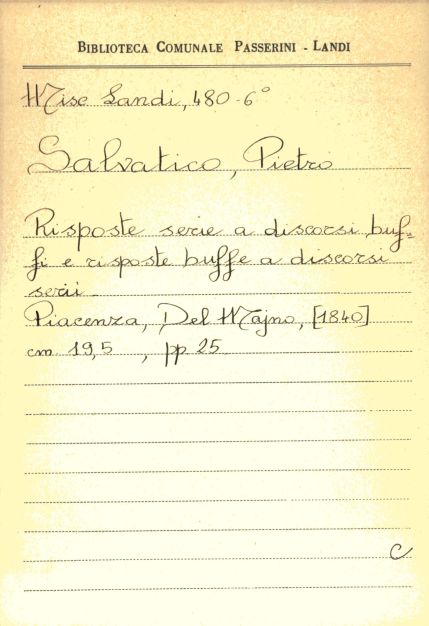 BIBLIOTECA COMUNALE PASSERINI - LANDI
Misc Landi, 480-6°
Salvatico, Pietro
Risposte serie a discorsi buf=
fi e risposte buffe a discorsi
serii.
Piacenza, Del Majno, [1840]
cm 19,5 , pp 25
C